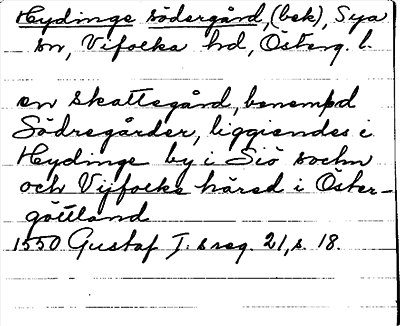 Hydinge södergård, (bek), Sya
sn, Vifolka hd, Österg. l.
en skattegård, benempd
Södregårder, liggiendes i
Hydinge by i Siö sochn
och Vijfocke härad i Öster-
göttland
1550 Gustaf I:s reg. 21, s. 18.